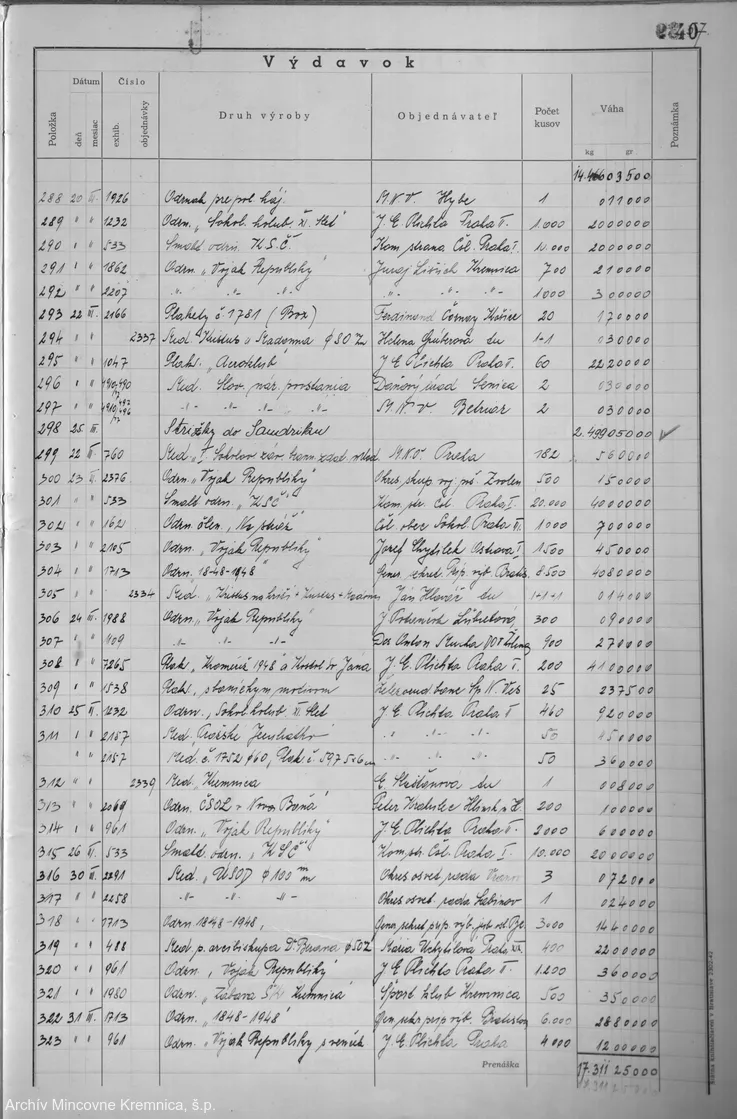 40
Výdavok
Položka Dátum deň mesiac Číslo exhib. objednávky Druh výroby Objednávateľ Počet kusov Váha kg gr Poznámka
288 20 III. 1926 Odznak pre pol. háj. M.N.V. Hybe 1 011000
289 " " 1232 Odzn. „Sokol. holub. XI. slet" J. E. Plichta Praha II. 1000 2000000
290 " " 533 Smalt. odzn. K.S.Č. Kom. strana Čsl. Praha I. 10.000 2000000
291 " " 1862 Odzn. „Vojak Republiky" Juraj Kremnica 700 210000
292 " " 2207 -"- -"- -"- -"- -"- 1000 300000
293 22 III. 2166 Plakety č 1781 (Box) Ferdinand Košice 20 170000
294 " " 2337 Med. Kristus a Madonna φ 80 Helena Gruberová tu 1-1 030000
295 " " 1047 Plak. „Aeroklub J. E. Plichta Praha II. 60 2220000
296 " " Med. Slov. nár. povstania Daňový úrad Senica 2 030000
297 " " -"- -"- -"- M.N.V. 2 030000
298 25 III. Strižky do Sandriku 2.49905000
299 22 III. 760 Med. M.N.V. 182 560000
300 23 III. 2376 Odzn. „Voják Republiky" Okres. skup. voj. Zvolen 500 150000
301 " " 533 Smalt. odzn. „KSČ" Kom. str. Čsl. Praha I. 20.000 4000000
302 " " 162 Odzn. člen. „Na stráž" Čsl. obec Sokol. Praha III. 1000 700000
303 " " 2105 Odzn. „Voják Republiky" Josef Ostrava I. 1500 450000
304 " " 1713 Odzn. „1848-1948" Gener. sekret. príp. výb. Bratis. 8500 4080000
305 " " 2334 Med. „Kristus na kríži + Kristus + Madonna Ján tu 1-1-1 014000
306 24 III. 1988 Odzn. „Voják Republiky" J. 300 090000
307 " " 409 -"- -"- Anton 900 270000
308 " " 7265 Plak. „Kroměříž 1948" a Kostol sv. Jána J. E. Plichta Praha II. 200 4100000
309 " " 1538 Plak. s baníckym motívom Železorud. bane Sp. N. Ves 25 237500
310 25 III. 1232 Odzn. „Sokol. holub. XI. slet J. E. Plichta Praha II 460 920000
311 " " 2157 Med. „Pražské Jezulátko" -"- -"- -"- 50 450000
" " 2157 Med. č. 1752 φ60, Plak. č. 597 50 360000
312 " " 2339 Med. „Kremnica E. tu 1 008000
313 " " 2069 Odzn. ČSOL v Nova Baňa Peter 200 100000
314 " " 961 Odzn. „Voják Republiky" J. E. Plichta Praha II. 2000 600000
315 26 III. 533 Smalt. odzn. „KSČ" Kom. str. Čsl. Praha I. 10.000 2000000
316 30 III. 2291 Med. „ φ 100 m/m Okres. osvet. rada 3 072000
317 " " 2258 -"- -"- -"- Okres. osvet. rada Sabinov 1 024000
318 " " 1713 Odzn. 1848-1948, Gener. sekret. príp. výb. 3000 1440000
319 " " 488 Med. p. arcibiskupa Dr. Berana φ 50 Maria Uchytilova Praha 400 2200000
320 " " 961 Odzn. „Voják Republiky" J. E. Plichta Praha II. 1200 360000
321 " " 1980 Odzn. „Zábava Kremnica" Šport klub Kremnica 500 350000
322 31 III. 1713 Odzn. „1848-1948" Gen. sekr. príp. výb. Bratislava 6.000 2880000
323 961 Odzn. „Voják Republiky s J. E. Plichta Praha 4000 1200000
Prenáška 17.311 25000
Archív Mincovne Kremnica, š.p.